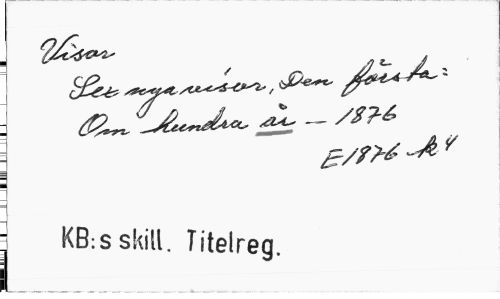 Visor
Sex nya visor, Den första:
Om hundra år – 1876
E1876 k4
KB:s skill. Titelreg.